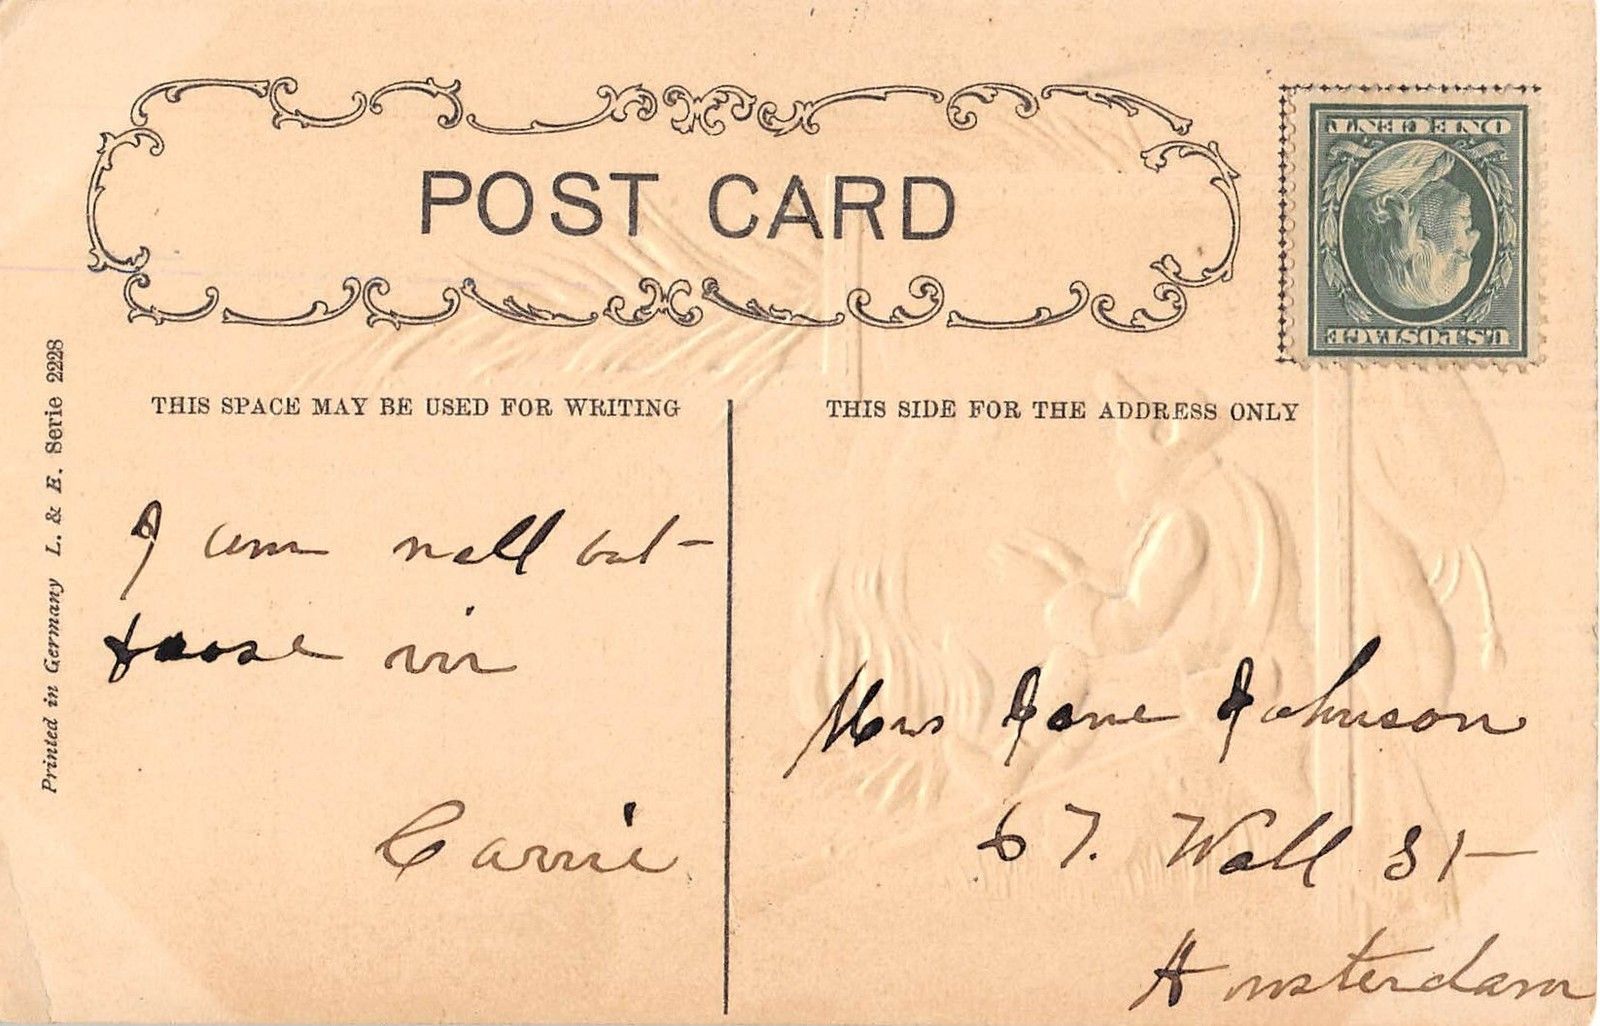 POST CARD
ONE CENT
U.S. POSTAGE
THIS SPACE MAY BE USED FOR WRITING
THIS SIDE FOR THE ADDRESS ONLY
Printed in Germany L. & E. Serie 2228
I am well but
Carrie
Mrs Jane Johnson
67. Wall St
Amsterdam